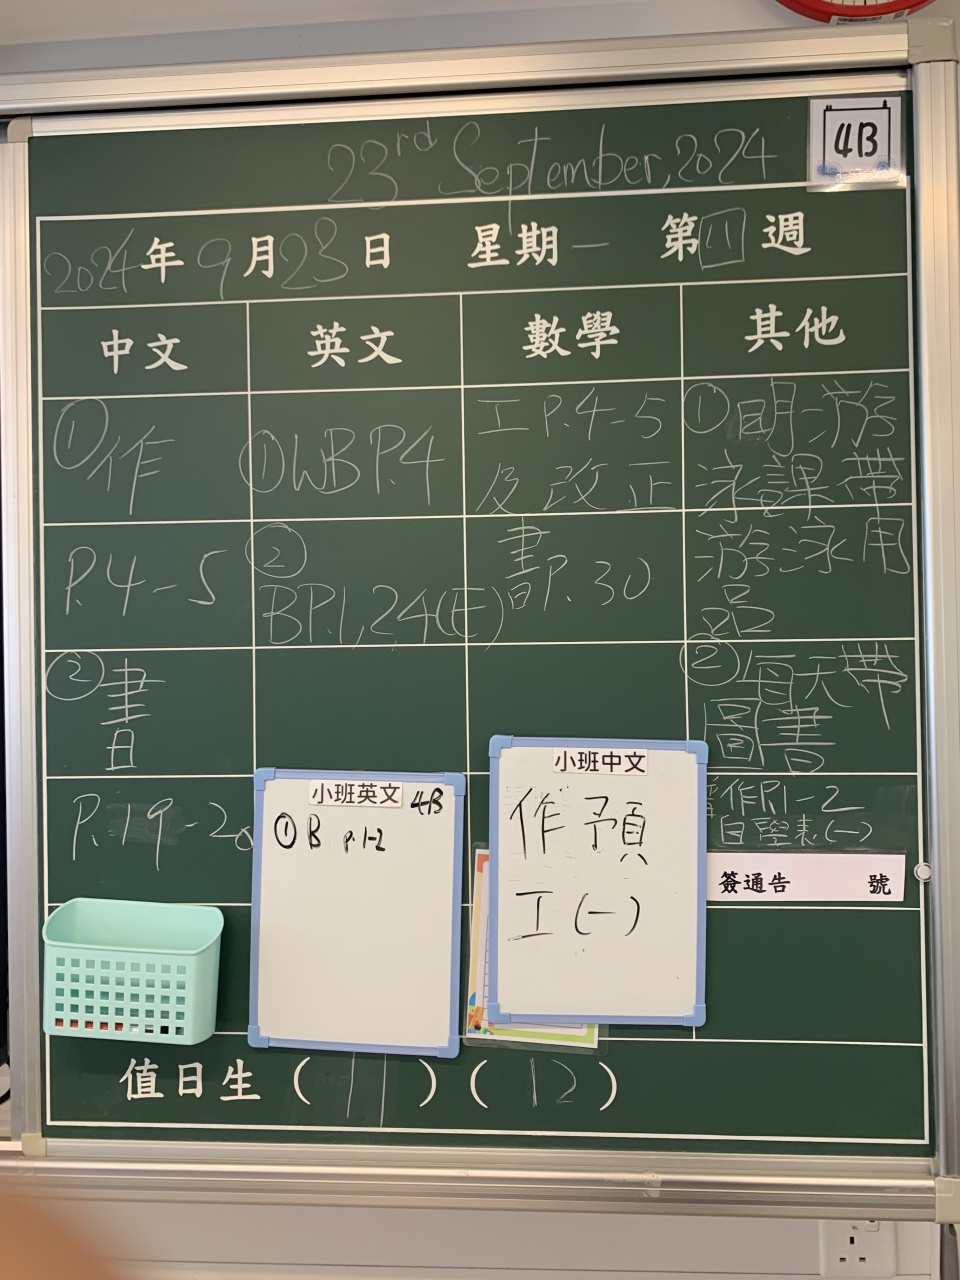 23rd September, 2024
4B
2024年9月23日 星期一 第四週
中文 英文 數學 其他
①作
P.4-5
②書
P.19-20
①WB P.4
②
BP.1,24(E)
工P.4-5
及改正
書P.30
①明游
泳課帶
游泳用
品
②每天帶
圖書
作P.1-2
自學表(一)
簽通告 號
小班英文
4B
①B p.1-2
小班中文
作預
工(一)
值日生(11)(12)